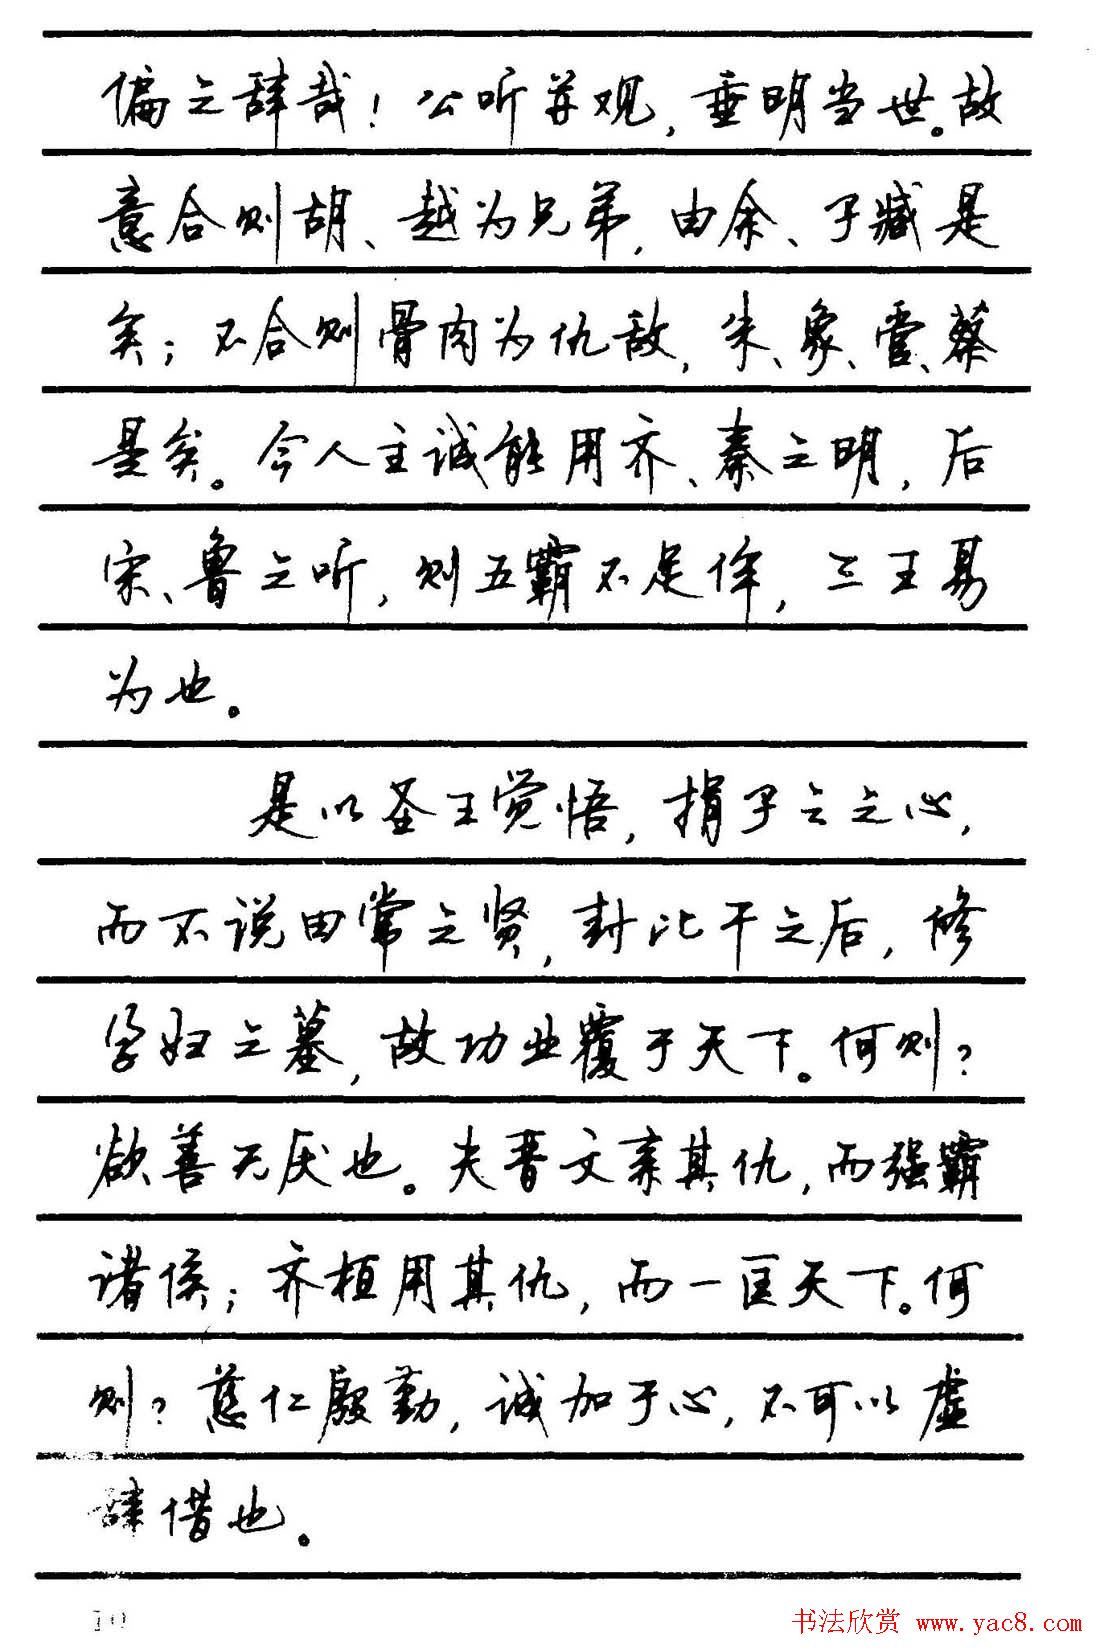 偏之辞哉！公听并观，垂明当世。故
意合则胡、越为兄弟，由余、子臧是
矣；不合则骨肉为仇敌，朱、象、管、蔡
是矣。今人主诚能用齐、秦之明，后
宋、鲁之听，则五霸不足侔，三王易
为也。
是以圣王觉悟，捐子之之心，
而不说田常之贤，封比干之后，修
孕妇之墓，故功业覆于天下。何则？
欲善无厌也。夫晋文亲其仇，而强霸
诸侯；齐桓用其仇，而一匡天下。何
则？慈仁殷勤，诚加于心，不可以虚
辞借也。
10
书法欣赏 www.yac8.com